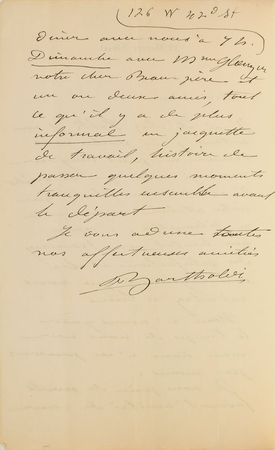 126 W 42d St
Diner avec nous à 7h.
Dimanche avec Mme
votre cher Beau père et
un ou deux amis, tout
ce qu'il y a de plus
informal en jaquette
de travail, histoire de
passer quelques moments
tranquilles ensemble avant
le départ
Je vous adresse toutes
nos affectueuses amitiés
Bartholdi